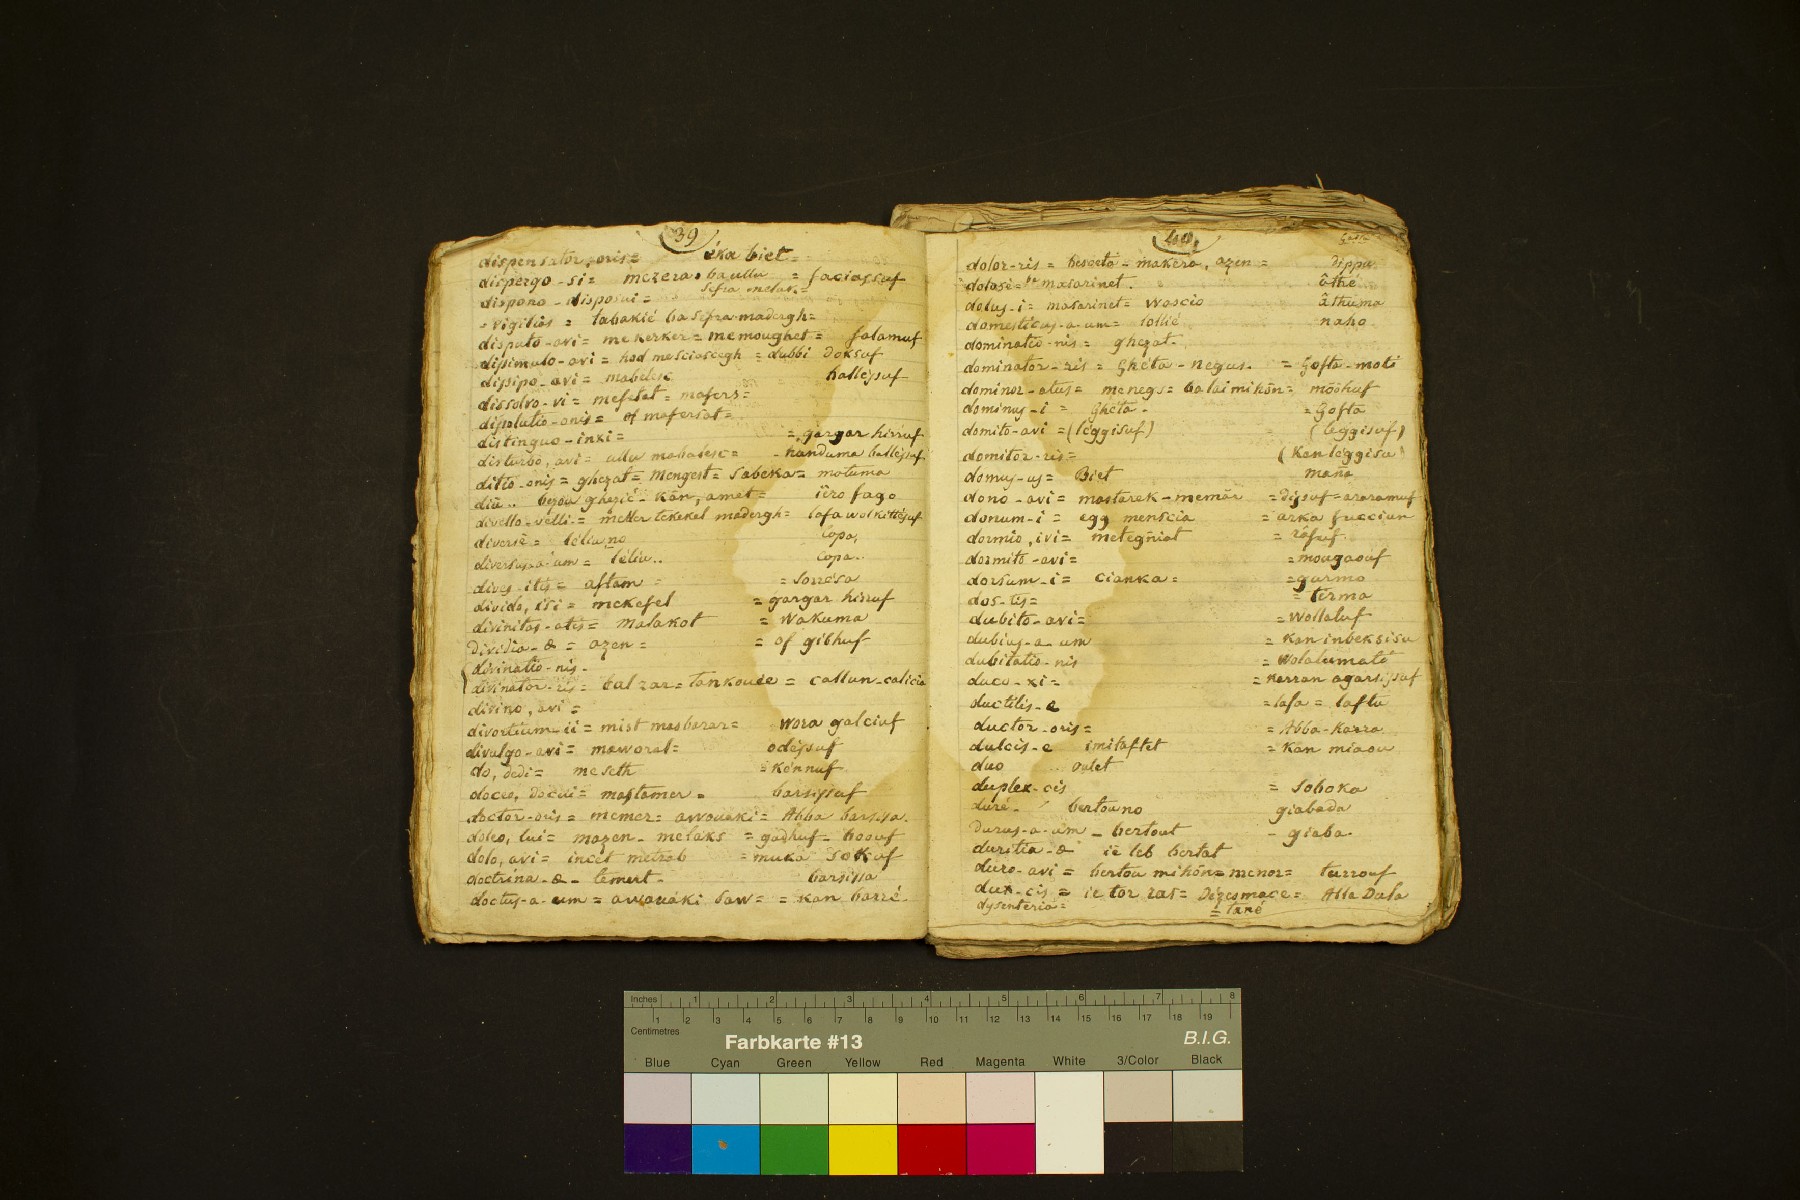 39
dispensator, oris = éka biet =
dispergo - si = mezera, ba ullu = faciassuf
dispono - disposui = sefra melak =
- vigilias = tabakié ba sefra madergh =
disputo - avi = mekerker = memoughet = falamuf
dissimulo - avi = hod mesciascegh = dubbi doksuf
dissipo - avi = mabelesc hallejsuf
dissolvo - vi = mefetat = mafers =
dissolutio - onis = of mafersat =
distinguo - inxi = = gargar hirruf
disturbo, avi = ullu mabalesc = - handuma ballejsuf
ditto - onis = ghezat = Mengest = Sabeka = motuma
diu .. bezou ghezié - kân, amet = iëro fago
divello - velli = metter tekekel madergh = lafa wolkittéjsuf
diversè = léliu no Copa,
diversus-a-um = léliu .. Copa ..
dives - itis = aftam = = Sorresa
divido, isi = mekefel = gargar hirruf
divinitas - atis = Malakot = Wakuma
Dividia - æ = azen = = of gibhuf
divinatio - nis -
divinator - ris = bal zar = tankouée = callun - calicia
divino, avi =
divortium - ii = mist masbarar = wora galciuf
divulgo - avi = maworat = odejsuf
do, dedi = meseth = kénnuf
doceo, docui = mastamer = barsijsuf
doctor - oris = memer = awouaki = Abba barsisa.
doleo, lui = mazen - melaks = gadhuf - booruf
dolo, avi = incet metreb = muka sokuf
doctrina - æ - temert - barsissa
doctus - a - um = awouaki saw = = kan barré.
40,
dolor - ris = besceta - makera, azen = dippu
dolosè = be matarinet. âthé
dolus - i = matarinet = woscio âthuma
domesticus - a - um = lollié naho
dominatio - nis = ghezat -
dominator - ris = Ghéta - negus. = Gofta - moti
dominor - atus = menegs = balaimikôn = moöhuf
dominus - i = Ghéta - = Gofta
domito - avi = (léggisuf) = (leggisuf)
domitor - ris = (Kan léggisu)
domus - us = Biet mana
dono - avi = mastarek - memâr = dijsuf = araramuf
donum - i = egg menscia = arka fucciun
dormio, ivi = metegniat = râfuf.
dormito - avi = = mougaouf
dorsum - i = cianka = = garmo
dos - tis = = terma
dubito - avi = = Wollaluf
dubius - a - um = Kan inbeksisu
dubitatio - nis = Wolalumató
duco - xi = = Karran agarsijsuf
ductilis - e = lafa = laftu
ductor - oris = = Abba - Karra
dulcis - e imitaftet = Kan miaou
duo oulet
duplex - cis = Soboka
durè - bertouno giabada
Durus - a - um - bertout - giaba -
duritia - æ ié leb bertat
duro - avi = bertou mikôn = menor = turrouf
dux - cis = ié tor ras = Dizesmace = Abba Dula
dysenteria = = tané